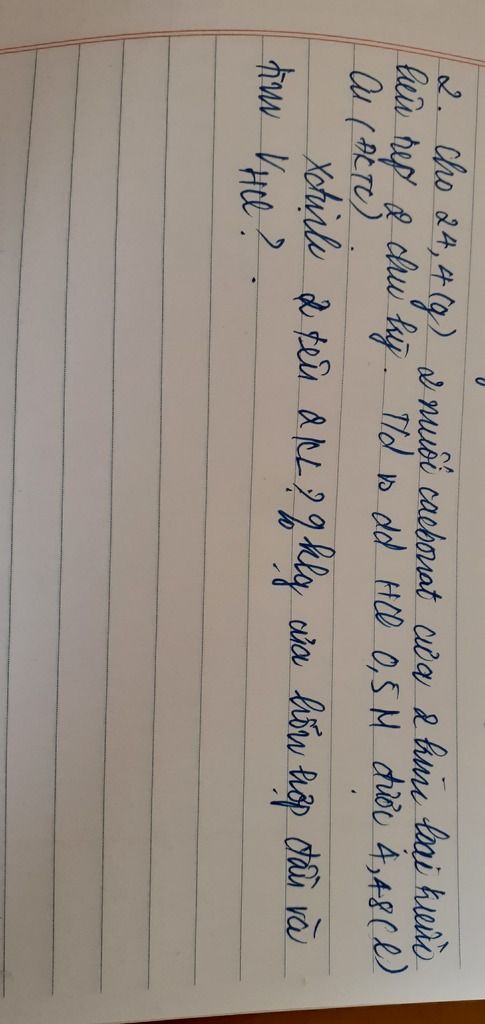 2. Cho 24,4(g) 2 muối cacbonat của 2 kim loại kiềm
liên tiếp 2 chu kỳ. T/d vs dd HCl 0,5M được 4,48(l)
(ĐKTC)
Xđịnh 2 tên 2KL? % klg của hỗn hợp đầu và
tìm V HCl?